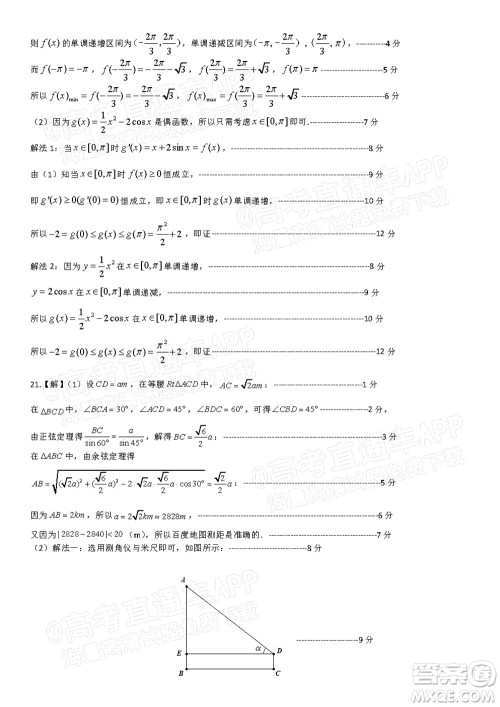 则 f(x) 的单调递增区间为(-2π/3, 2π/3)，单调递减区间为(-π, -2π/3)，(2π/3, π)，-----------4 分
而 f(-π)=-π， f(-2π/3)=-2π/3-√3， f(2π/3)=2π/3+√3， f(π)=π --------------------5 分
所以 f(x)min=f(-2π/3)=-2π/3-√3， f(x)max=f(2π/3)=2π/3+√3 --------------------6 分
（2）因为 g(x)=1/2x²-2cosx 是偶函数，所以只需考虑 x∈[0,π] 即可.-----------7 分
解法 1：当 x∈[0,π] 时 g'(x)=x+2sinx=f(x)，--------------------8 分
由（1）知当 x∈[0,π] 时 f(x)≥0 恒成立，--------------------9 分
即 g'(x)≥0(g'(0)=0) 恒成立，即 x∈[0,π] 时 g(x) 单调递增，--------------------10 分
所以 -2=g(0)≤g(x)≤g(π)=π²/2+2，即证--------------------12 分
解法 2：因为 y=1/2x² 在 x∈[0,π] 单调递增，--------------------8 分
y=2cosx 在 x∈[0,π] 单调递减，--------------------9 分
所以 g(x)=1/2x²-2cosx 在 x∈[0,π] 单调递增，--------------------10 分
所以 -2=g(0)≤g(x)≤g(π)=π²/2+2，即证--------------------12 分
21.【解】（1）设 CD=am，在等腰 Rt△ACD 中， AC=√2am；--------------------1 分
在 △BCD 中， ∠BCA=30°， ∠ACD=45°， ∠BDC=45°，--------------------2 分
由正弦定理得 BC/sin60°=a/sin45°，解得 BC=√6/2a；--------------------3 分
在 △ABC 中，由余弦定理得
AB=√((√2a)²+(√6/2a)²-2·√2a·√6/2a·cos30°)=√2/2a；--------------------5 分
因为 AB=2km，所以 a=2√2km=2828m，--------------------6 分
又因为|2828-2840|<20（m），所以百度地图测距是准确的.--------------------7 分
（2）解法一：选用测角仪与米尺即可，如图所示：--------------------8 分
A
E α D
B C
--------------------9 分
@高考直通车APP
海量高清文档免费下载
答案圈
MXQE.COM